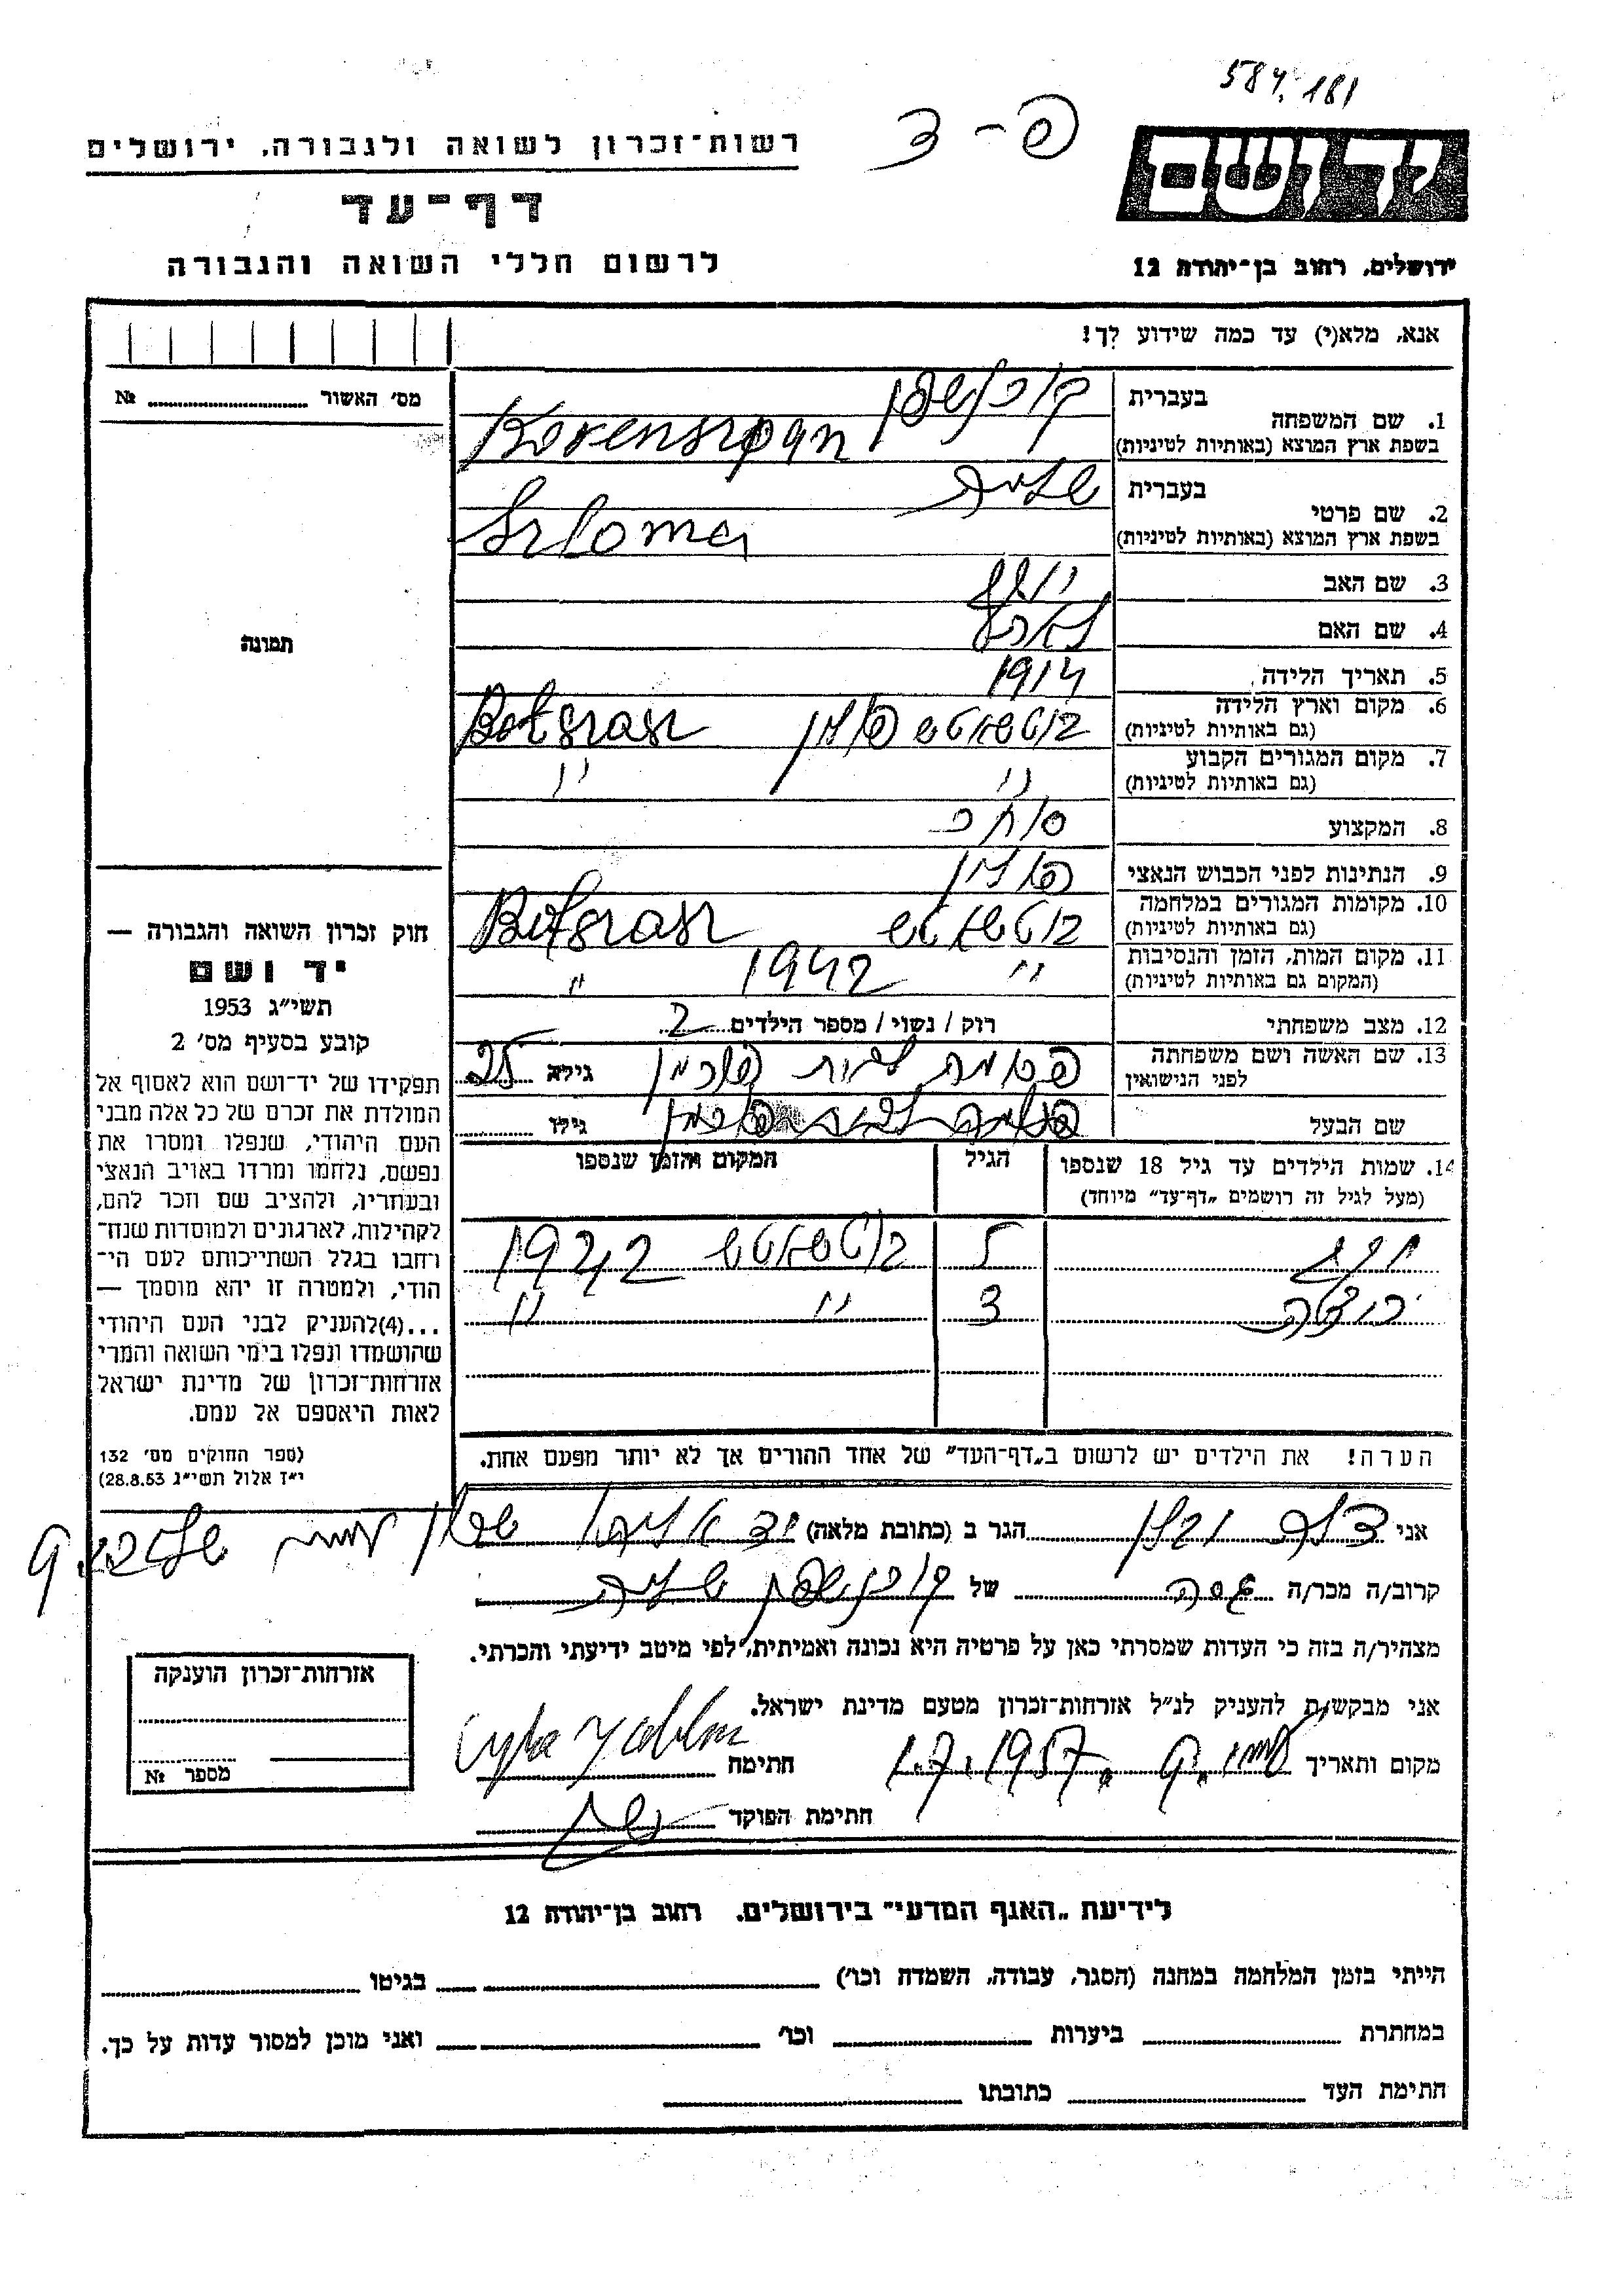 584.181
פ-צ
יד ושם
רשות־זכרון לשואה ולגבורה, ירושלים
דף־עד
לרשום חללי השואה והגבורה
ירושלים, רחוב בן־יהודה 12
אנא, מלא(י) עד כמה שידוע לך!
מס׳ האשור № 
1. שם המשפחה
בעברית
בשפת ארץ המוצא (באותיות לטיניות)
קורנשפן
Korensrpan
2. שם פרטי
בעברית
בשפת ארץ המוצא (באותיות לטיניות)
שלמה
Srloma
3. שם האב
יוסף
4. שם האם
5. תאריך הלידה
1914
6. מקום וארץ הלידה
(גם באותיות לטיניות)
בוטשאטש פולין
7. מקום המגורים הקבוע
(גם באותיות לטיניות)
" "
8. המקצוע
סוחר
9. הנתינות לפני הכבוש הנאצי
פולין
10. מקומות המגורים במלחמה
(גם באותיות לטיניות)
בוטשאטש
11. מקום המות, הזמן והנסיבות
(המקום גם באותיות לטיניות)
" 1942 "
12. מצב משפחתי
רוק / נשוי / מספר הילדים 2
13. שם האשה ושם משפחתה
לפני הנישואין
גילא 25
שם הבעל
גילו
14. שמות הילדים עד גיל 18 שנספו
(מעל לגיל זה רושמים „דף־עד״ מיוחד)
הגיל
המקום והזמן שנספו
5 בוטשאטש 1942
3 " "
הערה! את הילדים יש לרשום ב„דף־העד״ של אחד ההורים אך לא יותר מפעם אחת.
תמונה
חוק זכרון השואה והגבורה —
יד ושם
תשי״ג 1953
קובע בסעיף מס׳ 2
תפקידו של יד־ושם הוא לאסוף אל
המולדת את זכרם של כל אלה מבני
העם היהודי, שנפלו ומסרו את
נפשם, נלחמו ומרדו באויב הנאצי
ובעוזריו, ולהציב שם וזכר להם,
לקהילות, לארגונים ולמוסדות שנח־
רבו בגלל השתייכותם לעם הי־
הודי, ולמטרה זו יהא מוסמך —
...(4)להעניק לבני העם היהודי
שהושמדו ונפלו בימי השואה והמרי
אזרחות־זכרון של מדינת ישראל
לאות היאספם אל עמם.
(ספר החוקים מס׳ 132
י״ז אלול תשי״ג 28.8.53)
אני הגר ב (כתובת מלאה) יד אליהו
קרוב/ה מכר/ה של קורנשפן שלמה
מצהיר/ה בזה כי העדות שמסרתי כאן על פרטיה היא נכונה ואמיתית, לפי מיטב ידיעתי והכרתי.
אני מבקש/ת להעניק לנ״ל אזרחות־זכרון מטעם מדינת ישראל.
מקום ותאריך 1.7.1957 חתימה
חתימת הפוקד
אזרחות־זכרון הוענקה
מספר №
לידיעת „האגף המדעי״ בירושלים, רחוב בן־יהודה 12
הייתי בזמן המלחמה במחנה (הסגר, עבודה, השמדה וכו׳) בגיטו
במחתרת ביערות וכו׳ ואני מוכן למסור עדות על כך.
חתימת העד כתובתו